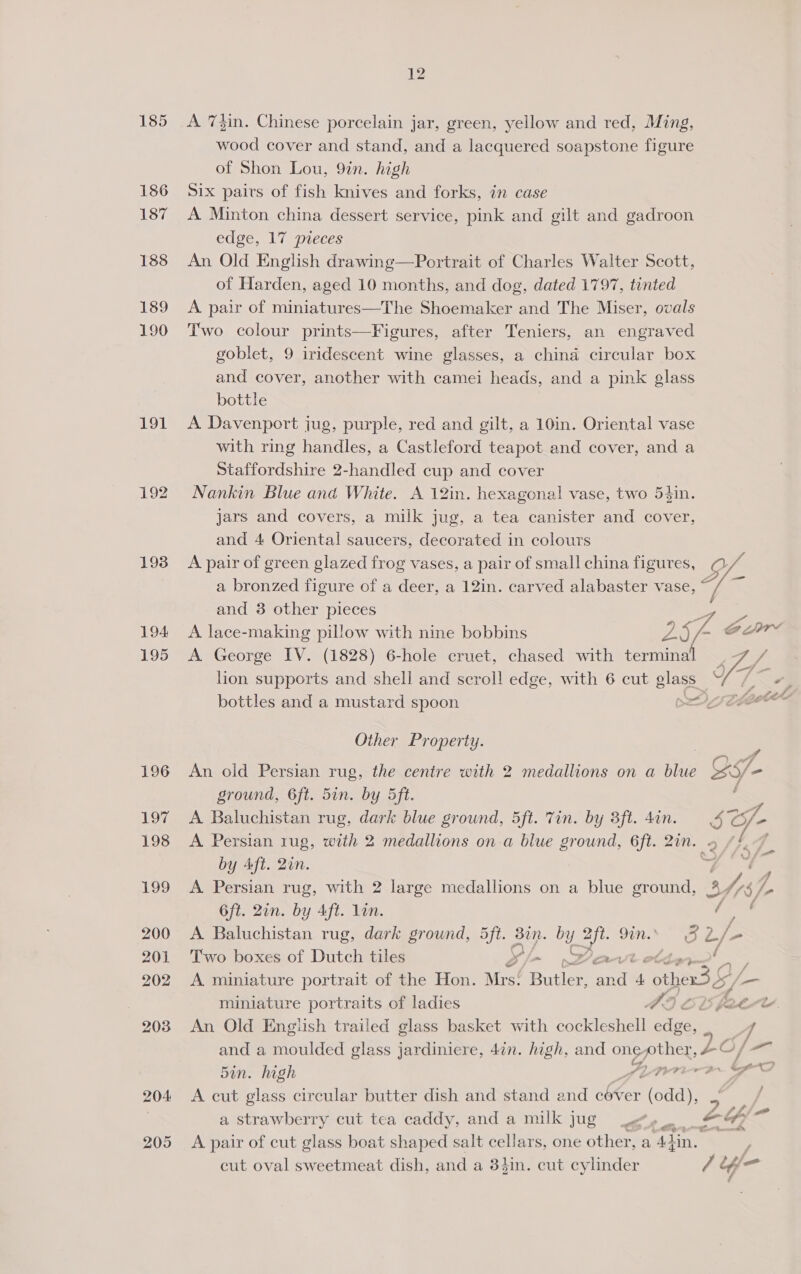 12
185 A 7½in. Chinese porcelain jar, green, yellow and red, Ming,
wood cover and stand, and a lacquered soapstone figure
of Shon Lou, 9in. high
186 Six pairs of fish knives and forks, in case
187 A Minton china dessert service, pink and gilt and gadroon
edge, 17 pieces
188 An Old English drawing—Portrait of Charles Walter Scott,
of Harden, aged 10 months, and dog, dated 1797, tinted
189 A pair of miniatures—The Shoemaker and The Miser, ovals
190 Two colour prints—Figures, after Teniers, an engraved
goblet, 9 iridescent wine glasses, a china circular box
and cover, another with camei heads, and a pink glass
bottle
191 A Davenport jug, purple, red and gilt, a 10in. Oriental vase
with ring handles, a Castleford teapot and cover, and a
Staffordshire 2-handled cup and cover
192 Nankin Blue and White. A 12in. hexagonal vase, two 5½in.
jars and covers, a milk jug, a tea canister and cover,
and 4 Oriental saucers, decorated in colours
193 A pair of green glazed frog vases, a pair of small china figures,
a bronzed figure of a deer, a 12in. carved alabaster vase,
and 3 other pieces
194 A lace-making pillow with nine bobbins 25/-
195 A George IV. (1828) 6-hole cruet, chased with terminal
lion supports and shell and scroll edge, with 6 cut glass
bottles and a mustard spoon
Other Property.
196 An old Persian rug, the centre with 2 medallions on a blue
ground, 6ft. 5in. by 5ft.
197 A Baluchistan rug, dark blue ground, 5ft. 7in. by 3ft. 4in.
198 A Persian rug, with 2 medallions on a blue ground, 6ft. 2in.
by 4ft. 2in.
199 A Persian rug, with 2 large medallions on a blue ground,
6ft. 2in. by 4ft. 1in.
200 A Baluchistan rug, dark ground, 5ft. 3in. by 2ft. 9in. 32/-
201 Two boxes of Dutch tiles
202 A miniature portrait of the Hon. Mrs. Butler, and 4 other 35/-
miniature portraits of ladies
203 An Old English trailed glass basket with cockleshell edge,
and a moulded glass jardiniere, 4in. high, and one other,
5in. high
204 A cut glass circular butter dish and stand and cover (odd),
a strawberry cut tea caddy, and a milk jug
205 A pair of cut glass boat shaped salt cellars, one other, a 4½in.
cut oval sweetmeat dish, and a 3½in. cut cylinder